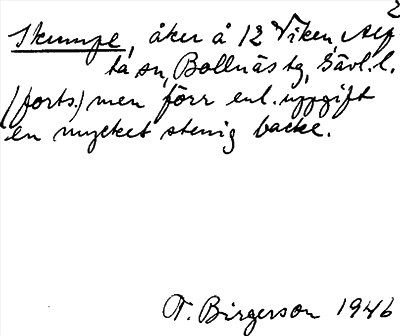 2
Skumpe, åker å 12 Viken, Alf
ta sn, Bollnäs tg, Gävl. l.
(forts.) men förr enl. uppgift
en mycket stenig backe.
T. Birgerson 1946